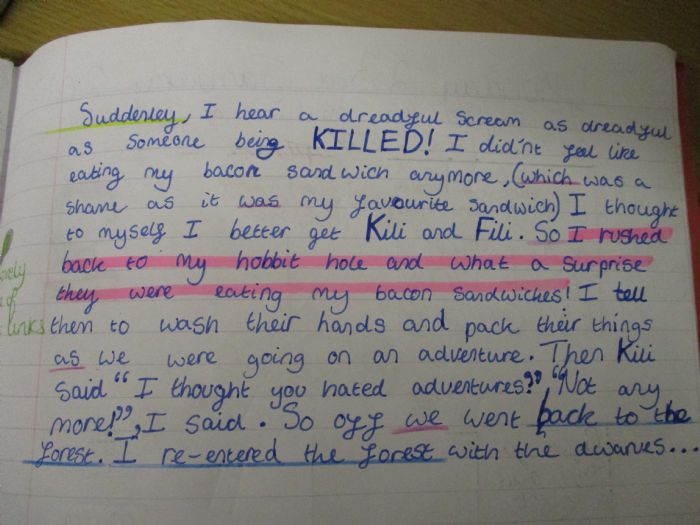 Suddenley, I hear a dreadful scream as dreadful
as someone being KILLED! I did'nt feel like
eating my bacon sandwich anymore, (which was a
shame as it was my favourite sandwich) I thought
to myself I better get Kili and Fili. So I rushed
back to my hobbit hole and what a surprise
they were eating my bacon sandwiches! I tell
them to wash their hands and pack their things
as we were going on an adventure. Then Kili
said "I thought you hated adventures?" "Not any
more!", I said. So off we went back to the
forest. I re-entered the forest with the dwarves...
links